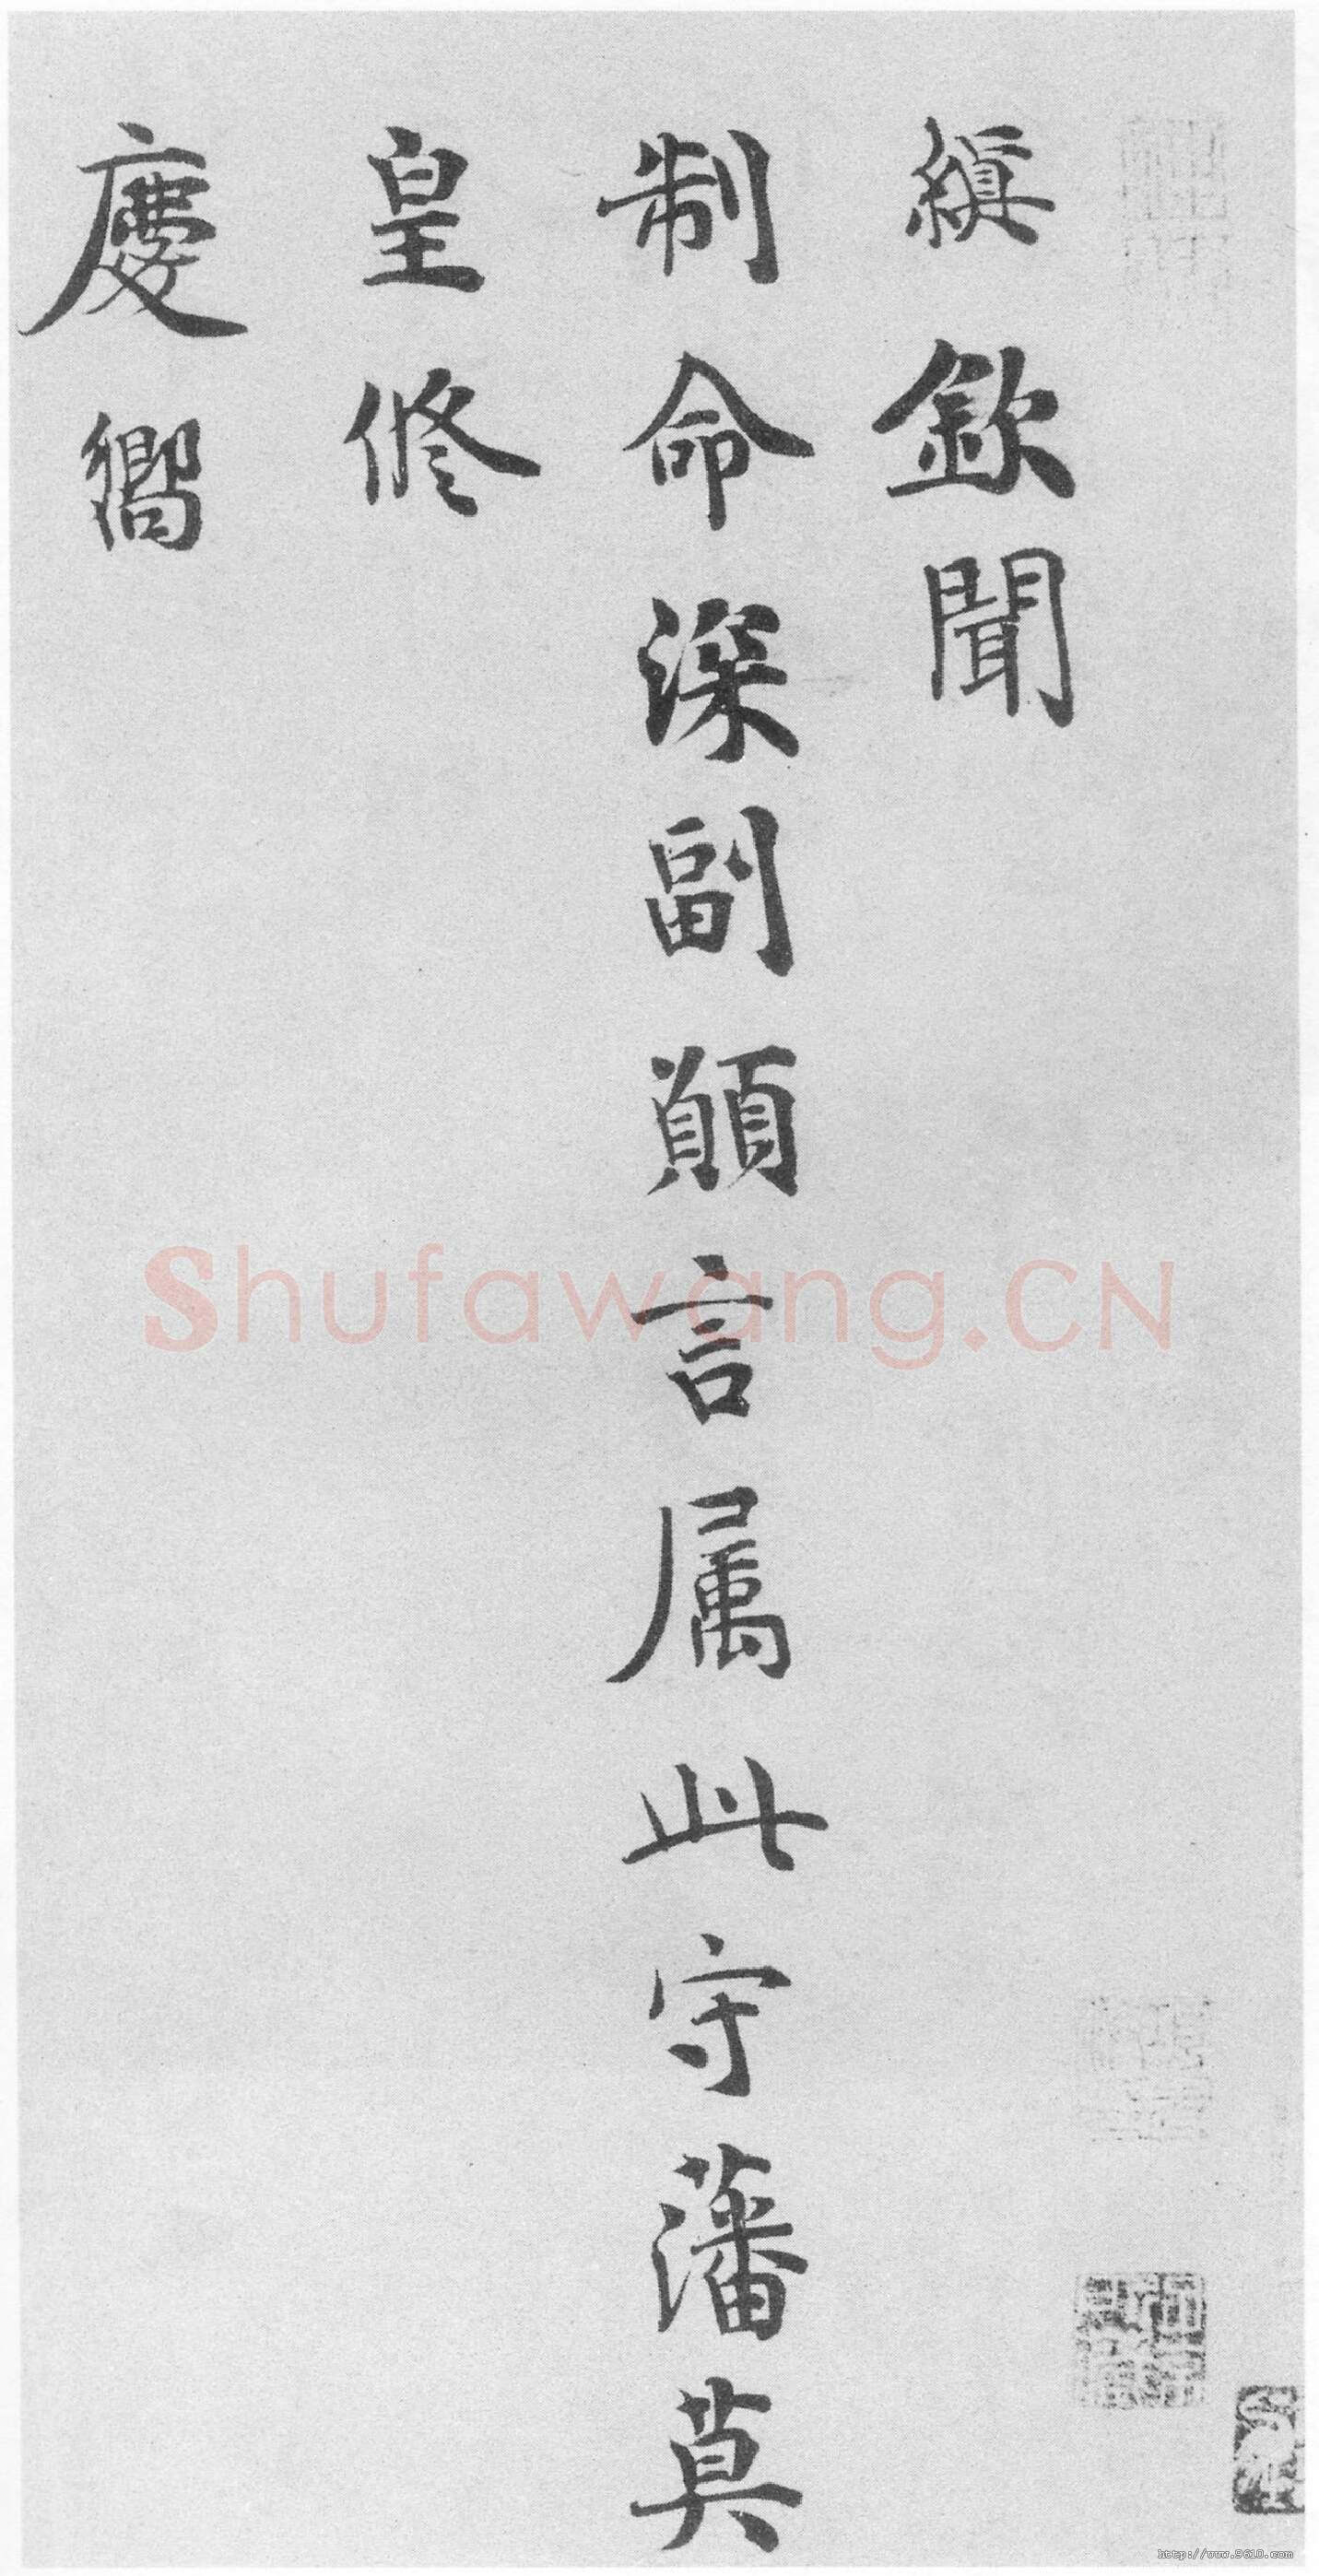 縝欽聞
制命深副顒言属此守藩莫
皇修
慶嚮
Shufawang.CN
http://www.9610.com